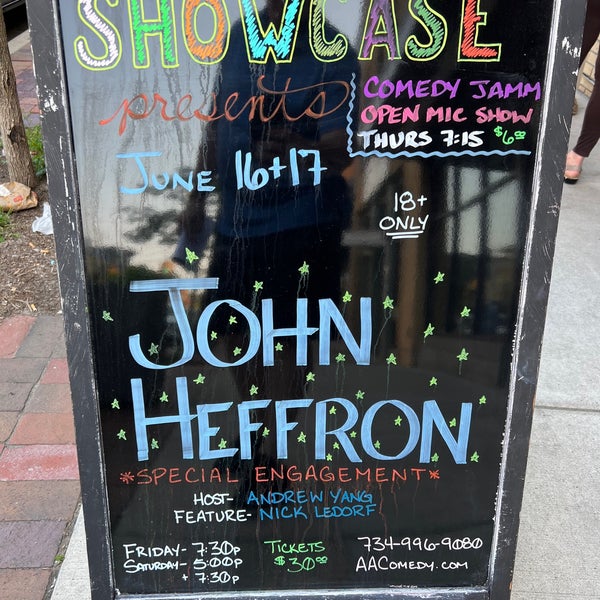 SHOWCASE
presents
COMEDY JAMM
OPEN MIC SHOW
THURS 7:15 $6.00
JUNE 16+17
18+
ONLY
JOHN
HEFFRON
*SPECIAL ENGAGEMENT*
HOST- ANDREW YANG
FEATURE- NICK LEDORF
FRIDAY- 7:30p
SATURDAY- 5:00p
+ 7:30p
TICKETS
$30.00
734-996-9080
AACOMEDY.COM